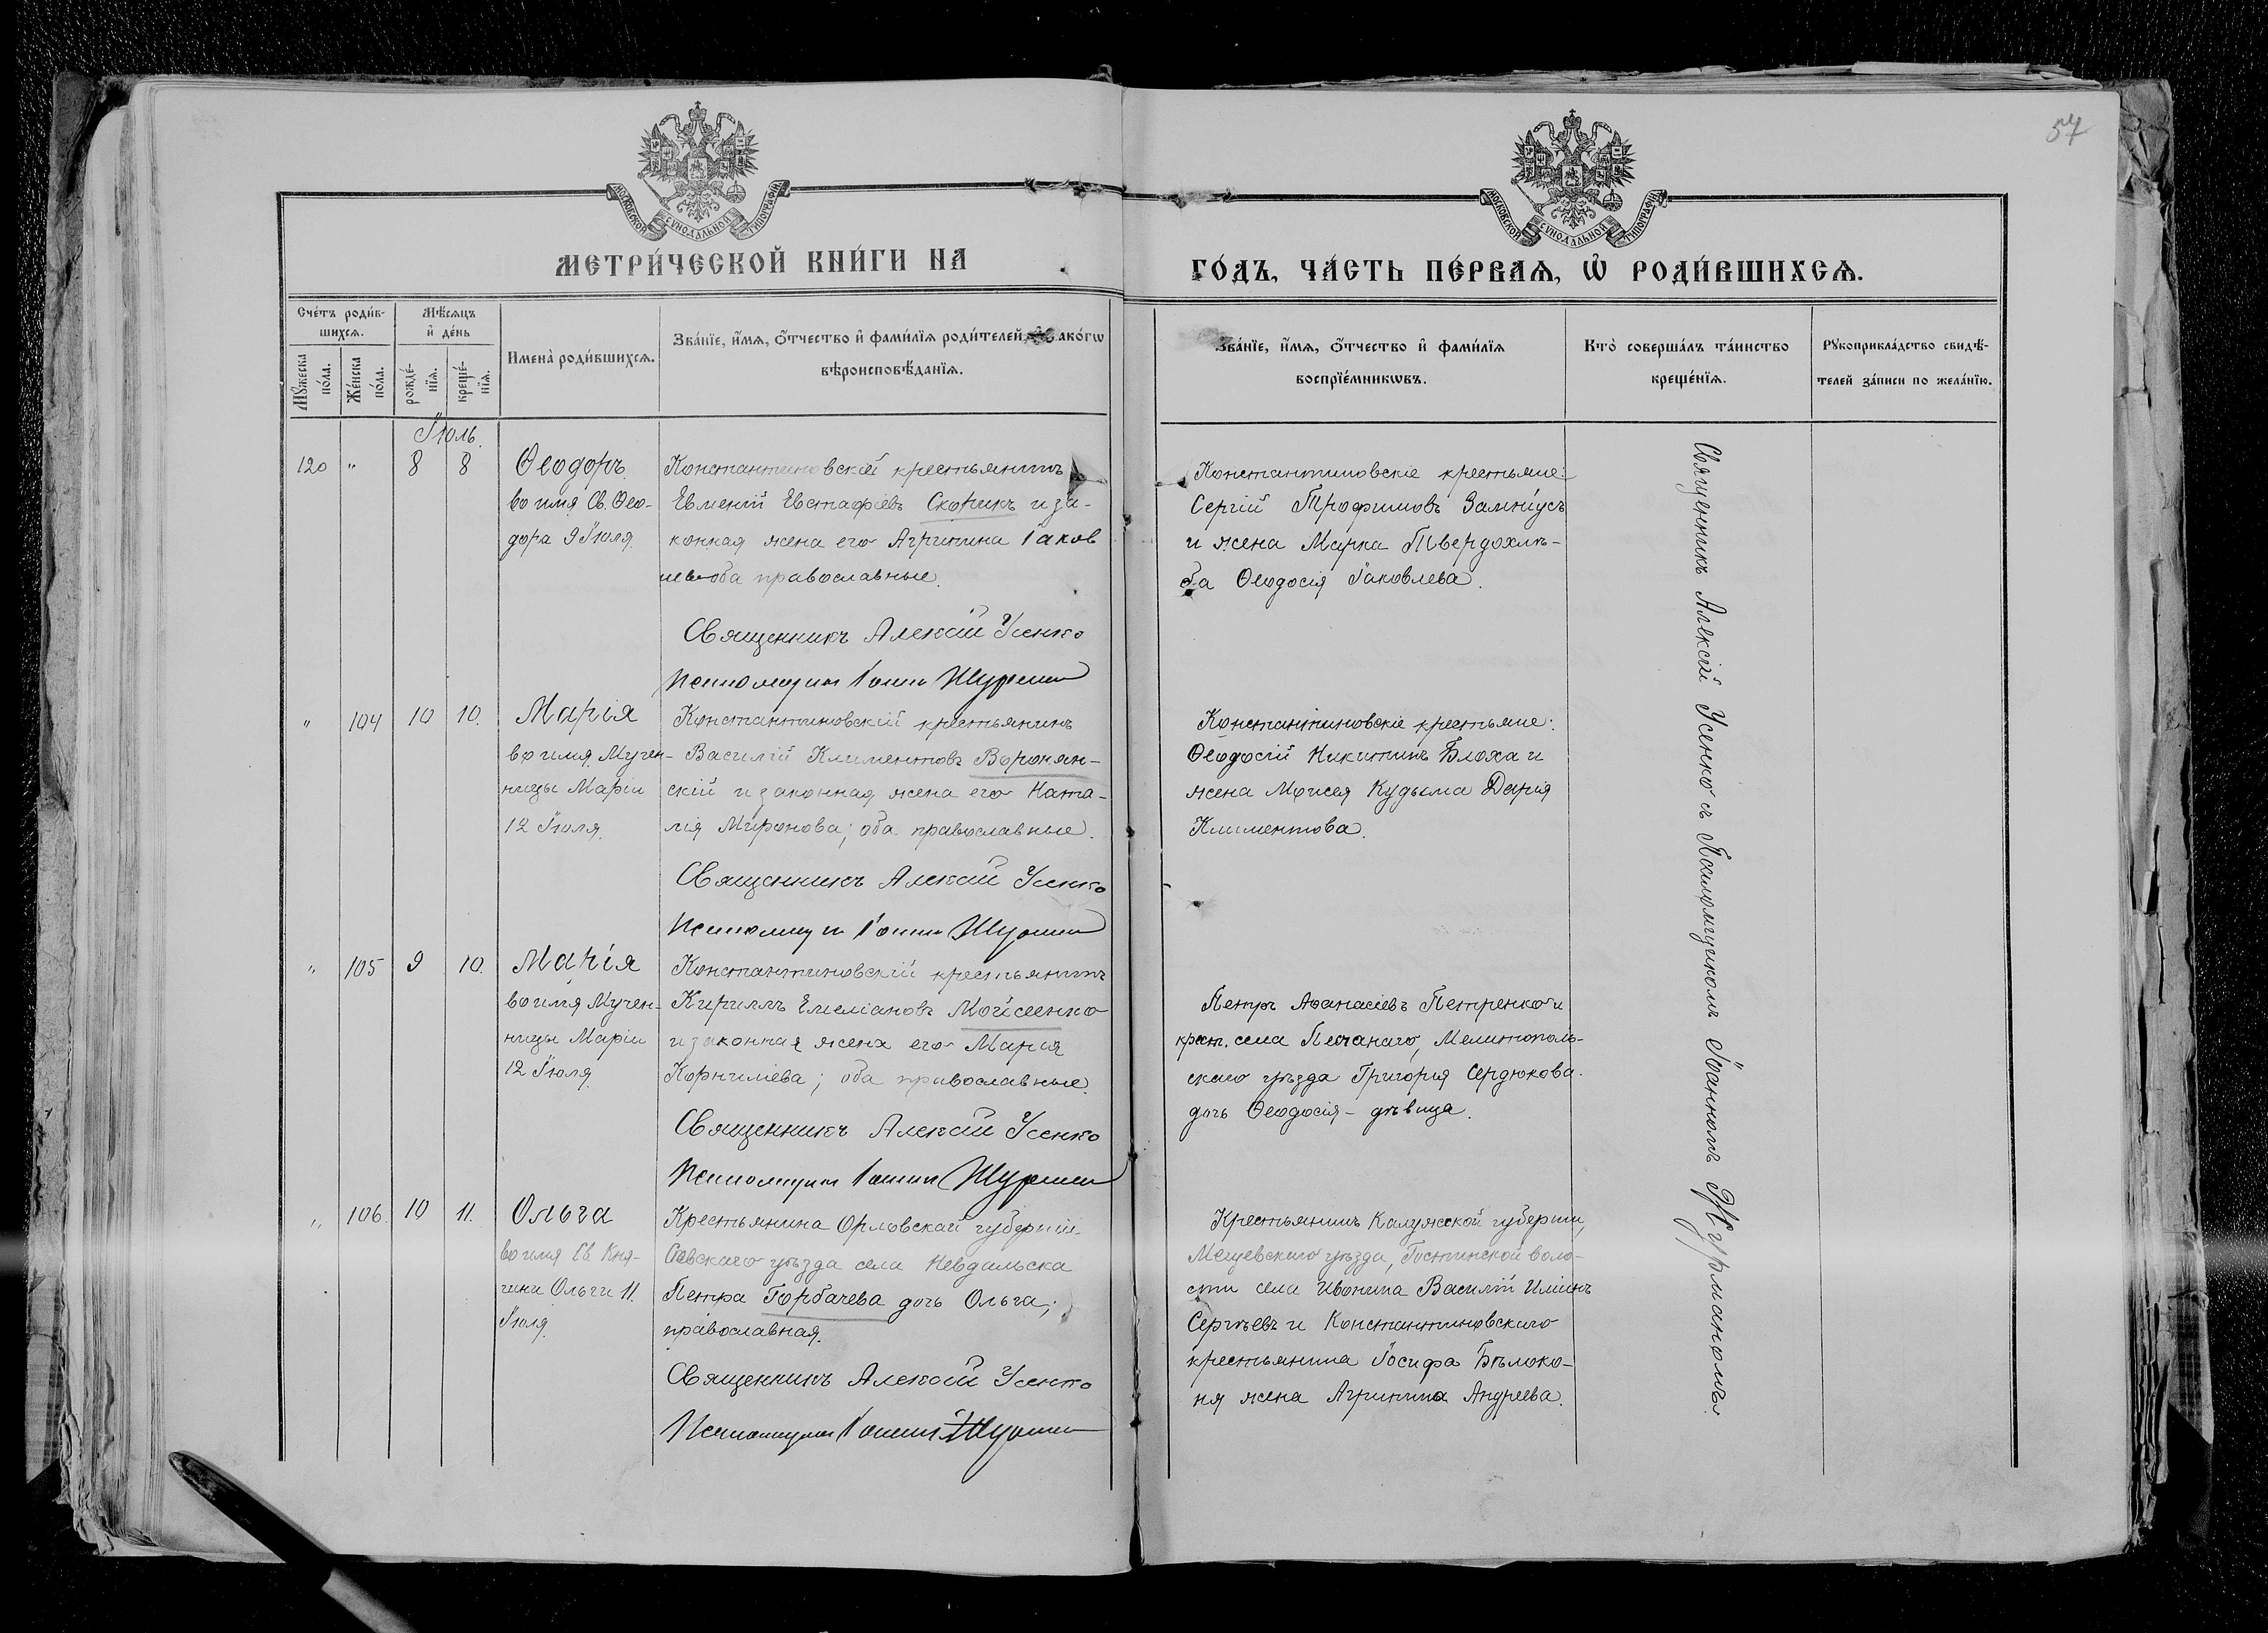 57
МОСКОВСКОЙ СУНОДАЛЬНОЙ ТИПОГРАФІИ
МОСКОВСКОЙ СУНОДАЛЬНОЙ ТИПОГРАФІИ
МЕТРИ́ЧЕСКОЙ КНИ́ГИ НА
ГО́ДЪ, ЧА́СТЬ ПЕ́РВАѦ, Ѡ҆ РОДИ́ВШИХСѦ.
Сче́тъ роди́в-
шихсѧ.
Мꙋ́жеска
по́ла.
Же́нска
по́ла.
Мѣ́сѧцъ
и҆ де́нь
рожде́-
нїѧ.
креще́-
нїѧ.
И҆мена̀ роди́вшихсѧ.
Зва́нїе, и҆́мѧ, ѻ҆́тчество и҆ фами́лїѧ роди́телей, и҆ како́гѡ
вѣроисповѣ́данїѧ.
Зва́нїе, и҆́мѧ, ѻ҆́тчество и҆ фами́лїѧ
воспрїе́мникѡвъ.
Кто̀ соверша́лъ та́инство
креще́нїѧ.
Рꙋкоприкла́дство свидѣ́-
телей за́писи по жела́нїю.
Іюль.
120 " 8 8
Ѳеодоръ
во имя Св. Ѳео-
дора 9 Іюля.
Константиновскій крестьянинъ
Евменій Евстафіевъ Скорикъ и за-
конная жена его Агрипина Іаков
лева оба православные.
Священникъ Алексій Усенко
Псаломщикъ Іоаннъ Журманъ
Константиновскіе крестьяне:
Сергій Трофимовъ Замніусъ
и жена Марка Твердохлѣ-
ба Ѳеодосія Іаковлева.
" 104 10 10.
Марія
во имя Мучен-
ницы Маріи
12 Іюля.
Константиновскій крестьянинъ
Василій Климентовъ Воронян-
скій и законная жена его Ната-
лія Миронова; оба православные.
Священникъ Алексій Усенко
Псаломщикъ Іоаннъ Журманъ
Константиновскіе крестьяне:
Ѳеодосій Никитинъ Блоха и
жена Моисея Кудьяма Дарія
Климентова.
" 105 9 10.
Марія
во имя Мучен-
ницы Маріи
12 Іюля.
Константиновскій крестьянинъ
Кириллъ Емеліановъ Мойсеенко
и законная жена его Марія
Корниліева; оба православные.
Священникъ Алексій Усенко
Псаломщикъ Іоаннъ Журманъ
Петръ Аѳанасіевъ Петренко и
крест. села Песчанаго, Мелитополь-
скаго уѣзда Григорія Сердюкова
дочь Ѳеодосія – дѣвица.
" 106 10 11.
Ольга
во имя Св. Кня-
гини Ольги 11
Іюля.
Крестьянина Орловской губерніи
Сѣвскаго уѣзда села Невдальска
Петра Горбачева дочь Ольга;
православная.
Священникъ Алексій Усенко
Псаломщикъ Іоаннъ Журманъ
Крестьянинъ Калужской губерніи,
Мещевскаго уѣзда, Гостинской воло-
сти села Ивонина Василій Ильинъ
Сергѣевъ и Константиновскаго
крестьянина Іосифа Бѣлоко-
ня жена Агрипина Андреева.
Священникъ Алексій Усенко съ Псаломщикомъ Іоанномъ Журманомъ.